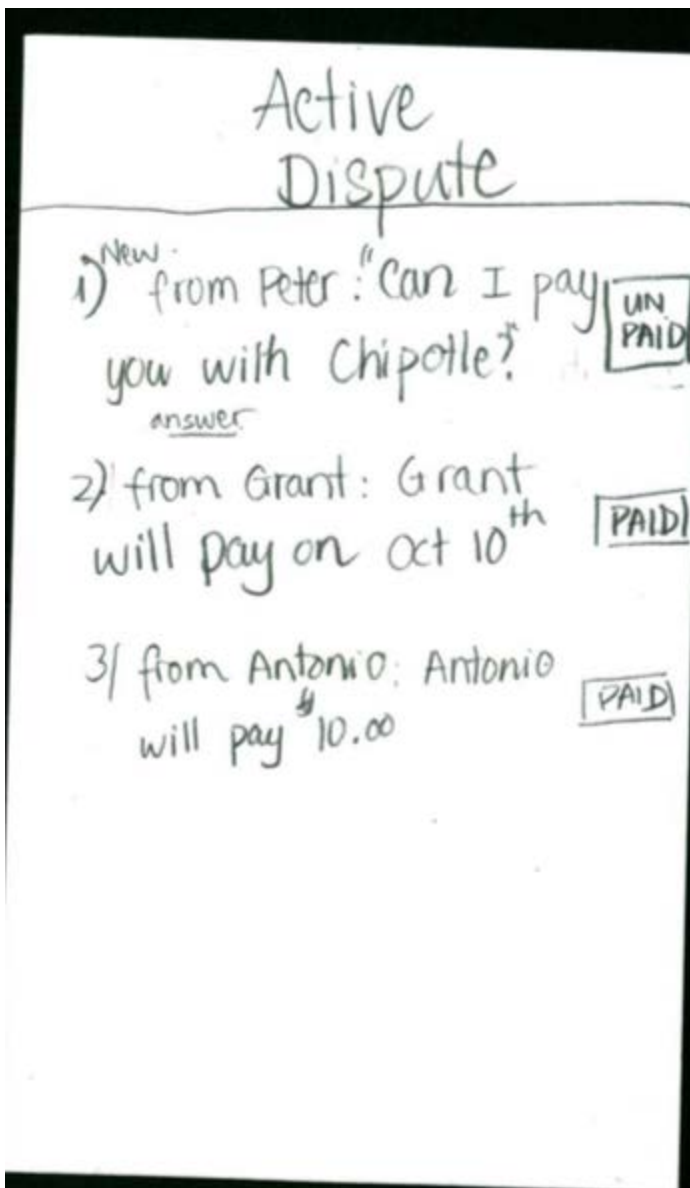 Active
Dispute
1) New from Peter: "Can I pay
you with Chipotle?"
answer
UN
PAID
2) from Grant: Grant
will pay on Oct 10th
PAID
3) from Antonio: Antonio
will pay $10.00
PAID